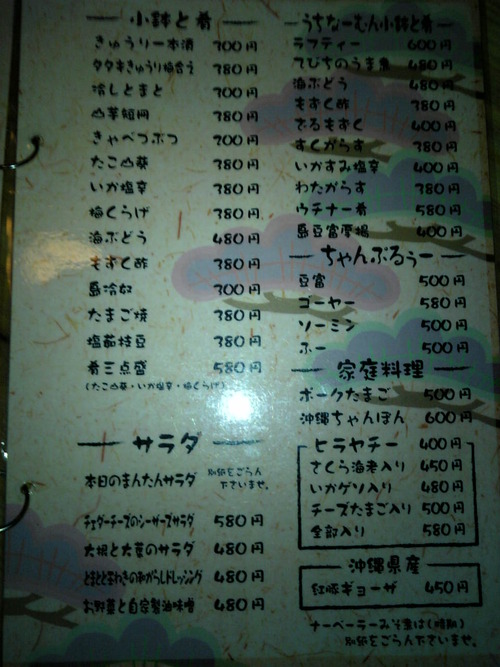 小鉢と肴
きゅうり一本漬 300円
タタキきゅうり梅合え 380円
冷しトマト 300円
山芋短冊 380円
きゃべつぶつ 300円
たこ山葵 380円
いか塩辛 380円
梅くらげ 380円
海ぶどう 480円
もずく酢 380円
島冷奴 300円
たまご焼 380円
塩茹枝豆 380円
肴三点盛 580円
(たこ山葵・いか塩辛・梅くらげ)
サラダ
本日のまんたんサラダ 別紙をごらん下さいませ。
チェダーチーズのシーザーズサラダ 580円
大根と大葉のサラダ 480円
とまとと玉ねぎの和がらしドレッシング 480円
お野菜と自家製油味噌 480円
うちなーむん小鉢と肴
ラフティー 600円
てびちのうま煮 480円
海ぶどう 480円
もずく酢 380円
ざるもずく 400円
すくがらす 380円
いかすみ塩辛 400円
わたがらす 380円
ウチナー肴 580円
島豆富厚揚 400円
ちゃんぷるぅー
豆富 500円
ゴーヤー 580円
ソーミン 500円
フー 500円
家庭料理
ポークたまご 500円
沖縄ちゃんぽん 600円
ヒラヤチー 400円
さくら海老入り 450円
いかゲソ入り 480円
チーズたまご入り 500円
全部入り 580円
沖縄県産
紅豚ギョーザ 450円
ナーベーラーみそ煮は(時期)
別紙をごらん下さいませ。